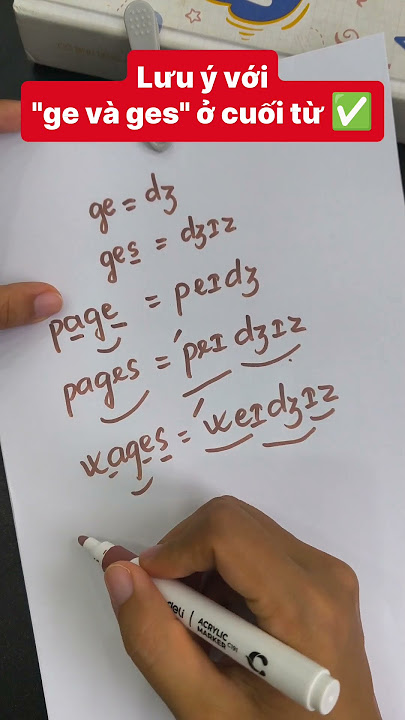 Lưu ý với
"ge và ges" ở cuối từ ✅
ge = dʒ
ges = dʒɪz
page = peɪdʒ
pages = ˈpeɪdʒɪz
wages = ˈweɪdʒɪz
deli | ACRYLIC MARKER